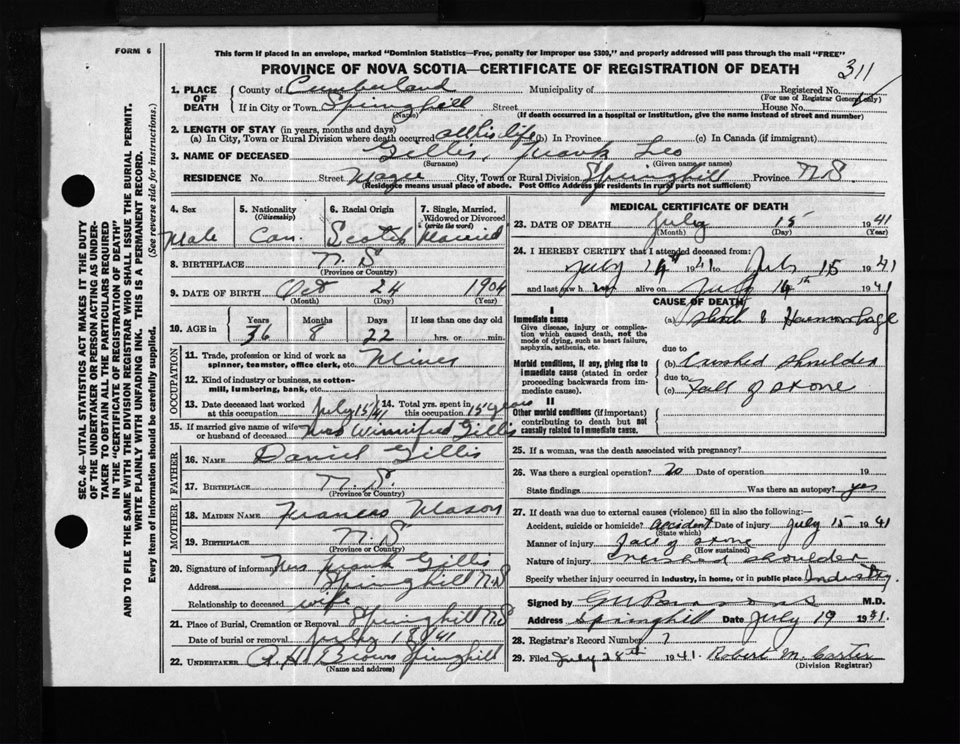 FORM 6
This form if placed in an envelope, marked "Dominion Statistics—Free, penalty for improper use $300," and properly addressed will pass through the mail "FREE"
PROVINCE OF NOVA SCOTIA—CERTIFICATE OF REGISTRATION OF DEATH 311
1. PLACE OF DEATH County of Cumberland Municipality of Registered No.
(For use of Registrar General only)
If in City or Town Springhill Street House No.
(Name) (If death occurred in a hospital or institution, give the name instead of street and number)
2. LENGTH OF STAY (in years, months and days)
(a) In City, Town or Rural Division where death occurred all his life (b) In Province (c) In Canada (if immigrant)
3. NAME OF DECEASED Gillis, Frank Leo
(Surname) (Given name or names)
RESIDENCE No. Street Magee City, Town or Rural Division Springhill Province N.S
(Residence means usual place of abode. Post Office Address for residents in rural parts not sufficient)
4. Sex 5. Nationality (Citizenship) 6. Racial Origin 7. Single, Married, Widowed or Divorced (write the word)
Male Can. Scotch Married
8. BIRTHPLACE N.S
(Province or Country)
9. DATE OF BIRTH Oct 24 1904
(Month) (Day) (Year)
10. AGE in Years Months Days If less than one day old
36 8 22 hrs. or min.
OCCUPATION
11. Trade, profession or kind of work as spinner, teamster, office clerk, etc. Miner
12. Kind of industry or business, as cotton-mill, lumbering, bank, etc.
13. Date deceased last worked at this occupation July 15/41 14. Total yrs. spent in this occupation 15 years
15. If married give name of wife or husband of deceased Mrs Winnifred Gillis
FATHER
16. NAME Daniel Gillis
17. BIRTHPLACE N.S.
(Province or Country)
MOTHER
18. MAIDEN NAME Frances Mason
19. BIRTHPLACE N.S
(Province or Country)
20. Signature of informant Mrs Frank Gillis
Address Springhill N.S
Relationship to deceased wife
21. Place of Burial, Cremation or Removal Springhill N.S
Date of burial or removal July 18 1941
22. UNDERTAKER R.H. Brown Springhill
(Name and address)
MEDICAL CERTIFICATE OF DEATH
23. DATE OF DEATH July 15 1941
(Month) (Day) (Year)
24. I HEREBY CERTIFY that I attended deceased from:
July 14th 1941 to July 15 1941
and last saw h alive on July 14th 1941
CAUSE OF DEATH
I
Immediate cause
Give disease, injury or complication which caused death, not the mode of dying, such as heart failure, asphyxia, asthenia, etc.
(a) Shock & Haemorrhage
due to
Morbid conditions, if any, giving rise to immediate cause (stated in order proceeding backwards from immediate cause).
(b) Crushed shoulder
due to
(c) Fall of stone
II
Other morbid conditions (if important) contributing to death but not causally related to immediate cause.
25. If a woman, was the death associated with pregnancy?
26. Was there a surgical operation? No Date of operation 19
State findings Was there an autopsy? yes
27. If death was due to external causes (violence) fill in also the following:—
Accident, suicide or homicide? accident Date of injury July 15 1941
(State which)
Manner of injury Fall of stone
(How sustained)
Nature of injury crushed shoulder
Specify whether injury occurred in industry, in home, or in public place Industry.
Signed by M.D.
Address Springhill Date July 19 1941.
28. Registrar's Record Number 7
29. Filed July 28th 1941. Robert M. Carter
(Division Registrar)
SEC. 46—VITAL STATISTICS ACT MAKES IT THE DUTY
OF THE UNDERTAKER OR PERSON ACTING AS UNDER-
TAKER TO OBTAIN ALL THE PARTICULARS REQUIRED
IN THE "CERTIFICATE OF REGISTRATION OF DEATH"
AND TO FILE THE SAME WITH THE DIVISION REGISTRAR WHO SHALL ISSUE THE BURIAL PERMIT.
WRITE PLAINLY WITH UNFADING INK. THIS IS A PERMANENT RECORD.
Every item of information should be carefully supplied. (See reverse side for instructions.)